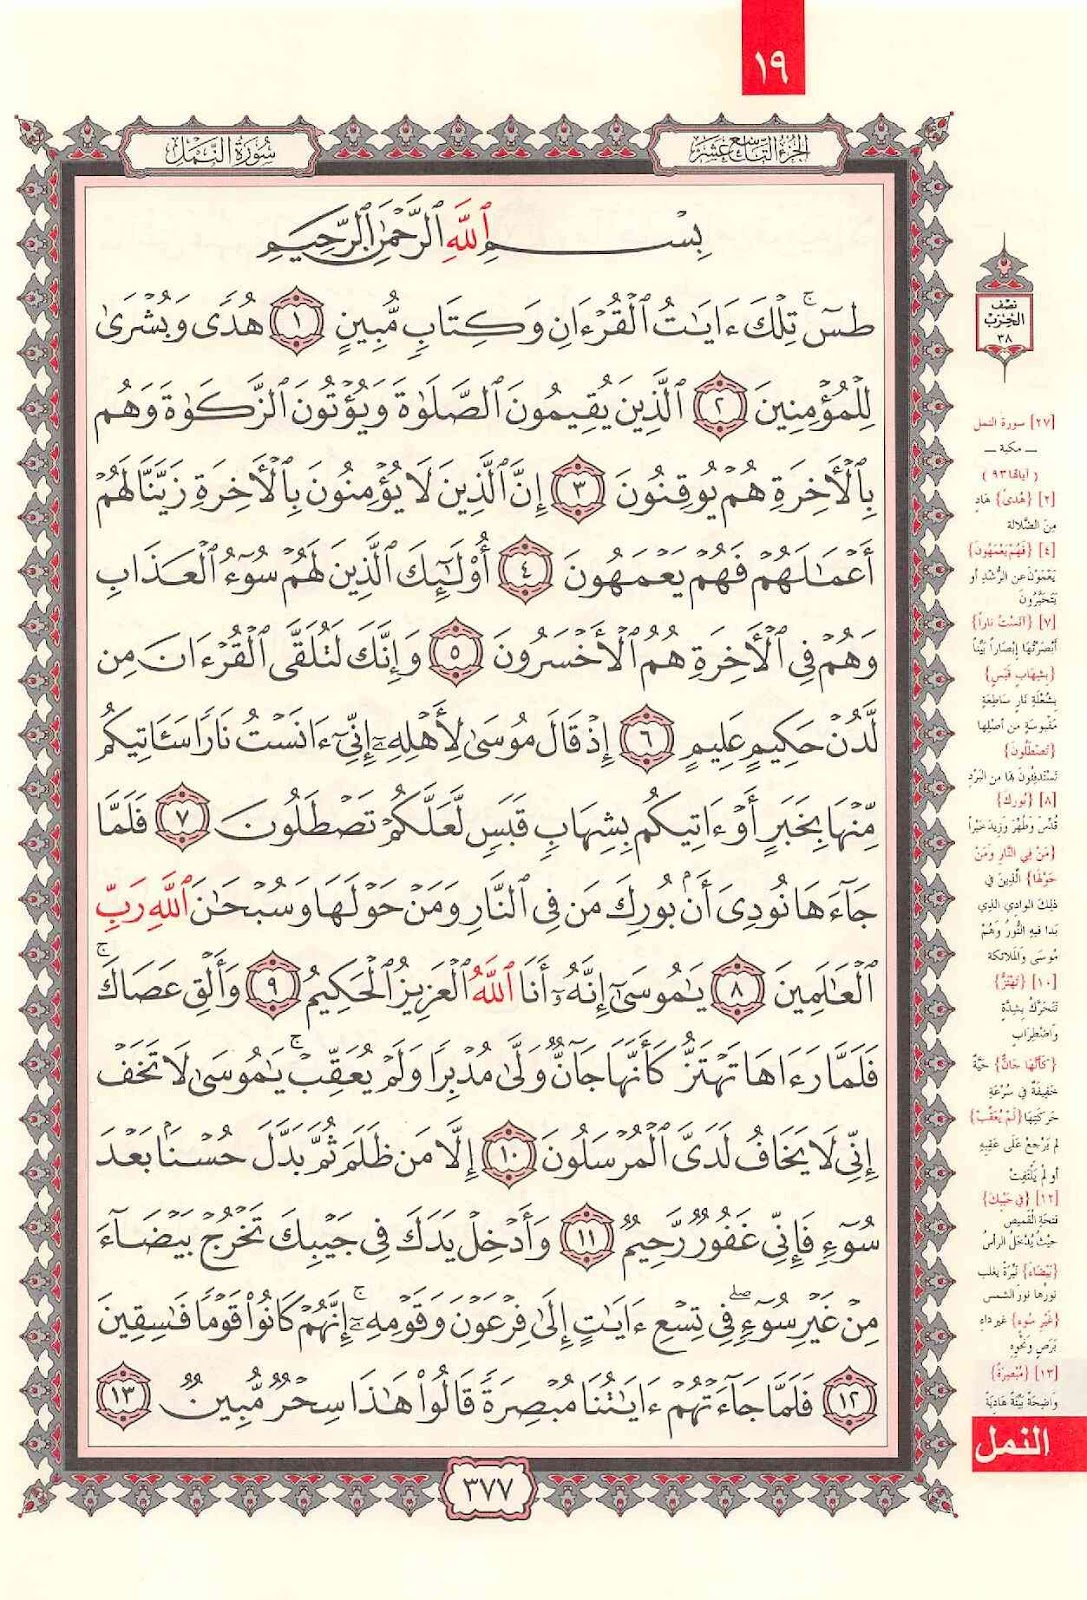 ١٩
الجزء التاسع عشر
سورة النمل
بِسْمِ ٱللَّهِ ٱلرَّحْمَٰنِ ٱلرَّحِيمِ
طسٓ ۚ تِلْكَ ءَايَٰتُ ٱلْقُرْءَانِ وَكِتَابٍ مُّبِينٍ ١ هُدًى وَبُشْرَىٰ
لِلْمُؤْمِنِينَ ٢ ٱلَّذِينَ يُقِيمُونَ ٱلصَّلَوٰةَ وَيُؤْتُونَ ٱلزَّكَوٰةَ وَهُم
بِٱلْأَخِرَةِ هُمْ يُوقِنُونَ ٣ إِنَّ ٱلَّذِينَ لَا يُؤْمِنُونَ بِٱلْأَخِرَةِ زَيَّنَّا لَهُمْ
أَعْمَٰلَهُمْ فَهُمْ يَعْمَهُونَ ٤ أُوْلَٰٓئِكَ ٱلَّذِينَ لَهُمْ سُوٓءُ ٱلْعَذَابِ
وَهُمْ فِى ٱلْأَخِرَةِ هُمُ ٱلْأَخْسَرُونَ ٥ وَإِنَّكَ لَتُلَقَّى ٱلْقُرْءَانَ مِن
لَّدُنْ حَكِيمٍ عَلِيمٍ ٦ إِذْ قَالَ مُوسَىٰ لِأَهْلِهِۦٓ إِنِّىٓ ءَانَسْتُ نَارًا سَـَٔاتِيكُم
مِّنْهَا بِخَبَرٍ أَوْ ءَاتِيكُم بِشِهَابٍ قَبَسٍ لَّعَلَّكُمْ تَصْطَلُونَ ٧ فَلَمَّا
جَآءَهَا نُودِىَ أَنۢ بُورِكَ مَن فِى ٱلنَّارِ وَمَنْ حَوْلَهَا وَسُبْحَٰنَ ٱللَّهِ رَبِّ
ٱلْعَٰلَمِينَ ٨ يَٰمُوسَىٰٓ إِنَّهُۥٓ أَنَا ٱللَّهُ ٱلْعَزِيزُ ٱلْحَكِيمُ ٩ وَأَلْقِ عَصَاكَ ۚ
فَلَمَّا رَءَاهَا تَهْتَزُّ كَأَنَّهَا جَآنٌّ وَلَّىٰ مُدْبِرًا وَلَمْ يُعَقِّبْ ۚ يَٰمُوسَىٰ لَا تَخَفْ
إِنِّى لَا يَخَافُ لَدَىَّ ٱلْمُرْسَلُونَ ١٠ إِلَّا مَن ظَلَمَ ثُمَّ بَدَّلَ حُسْنًۢا بَعْدَ
سُوٓءٍ فَإِنِّى غَفُورٌ رَّحِيمٌ ١١ وَأَدْخِلْ يَدَكَ فِى جَيْبِكَ تَخْرُجْ بَيْضَآءَ
مِنْ غَيْرِ سُوٓءٍ ۖ فِى تِسْعِ ءَايَٰتٍ إِلَىٰ فِرْعَوْنَ وَقَوْمِهِۦٓ ۚ إِنَّهُمْ كَانُوا۟ قَوْمًا فَٰسِقِينَ
١٢ فَلَمَّا جَآءَتْهُمْ ءَايَٰتُنَا مُبْصِرَةً قَالُوا۟ هَٰذَا سِحْرٌ مُّبِينٌ ١٣
٣٧٧
نصف
الحزب
٣٨
[٢٧] سورة النمل
ــ مكية ــ
(آياتها ٩٣)
[٢] {هُدًى} هَادٍ
مِنَ الضَّلالة
[٤] {فَهُمْ يَعْمَهُونَ}
يَعْمَوْنَ عن الرُّشْدِ أو
يَتَحَيَّرُونَ
[٧] {آنَسْتُ ناراً}
أبْصَرْتُها إبْصاراً بَيِّناً
{بِشِهَابٍ قَبَسٍ}
بِشُعْلَةِ نارٍ سَاطِعَةٍ
مَقْبوسَةٍ من أصْلِها
{تَصْطَلُونَ}
تَسْتَدفِئُونَ بِهَا من البَرْدِ
[٨] {بُورِكَ}
قُدِّسَ وَطُهِّرَ وَزِيدَ خَيْراً
{مَنْ فِي النَّارِ وَمَنْ
حَوْلَهَا} الَّذِينَ في
ذلِكَ الوادي الذي
بَدا فيهِ النُّورُ وَهُمْ
مُوسَى وَالْمَلائكة
[١٠] {تَهْتَزُّ}
تَتَحَرَّكُ بِشِدَّةٍ
وَاضْطِرَابٍ
{كَأَنَّهَا جَانٌّ} حَيَّةٌ
خَفِيفَةٌ في سُرْعَةِ
حَرَكَتِهَا {لَمْ يُعَقِّبْ}
لم يَرْجِعْ عَلَى عَقِبِهِ
أو لَمْ يَلْتَفِتْ
[١٢] {في جَيْبِكَ}
فتحَةِ القَميصِ
حيْثُ يُدْخَلُ الرأسُ
{بَيْضَاءَ} نَيِّرَةً يغلب
نورُها نورَ الشمس
{غَيْرِ سُوءٍ} غير داءِ
بَرَصٍ وَنَحْوِهِ
[١٣] {مُبْصِرَةً}
وَاضِحَةً بَيِّنَةً هَادِيَةً
النمل